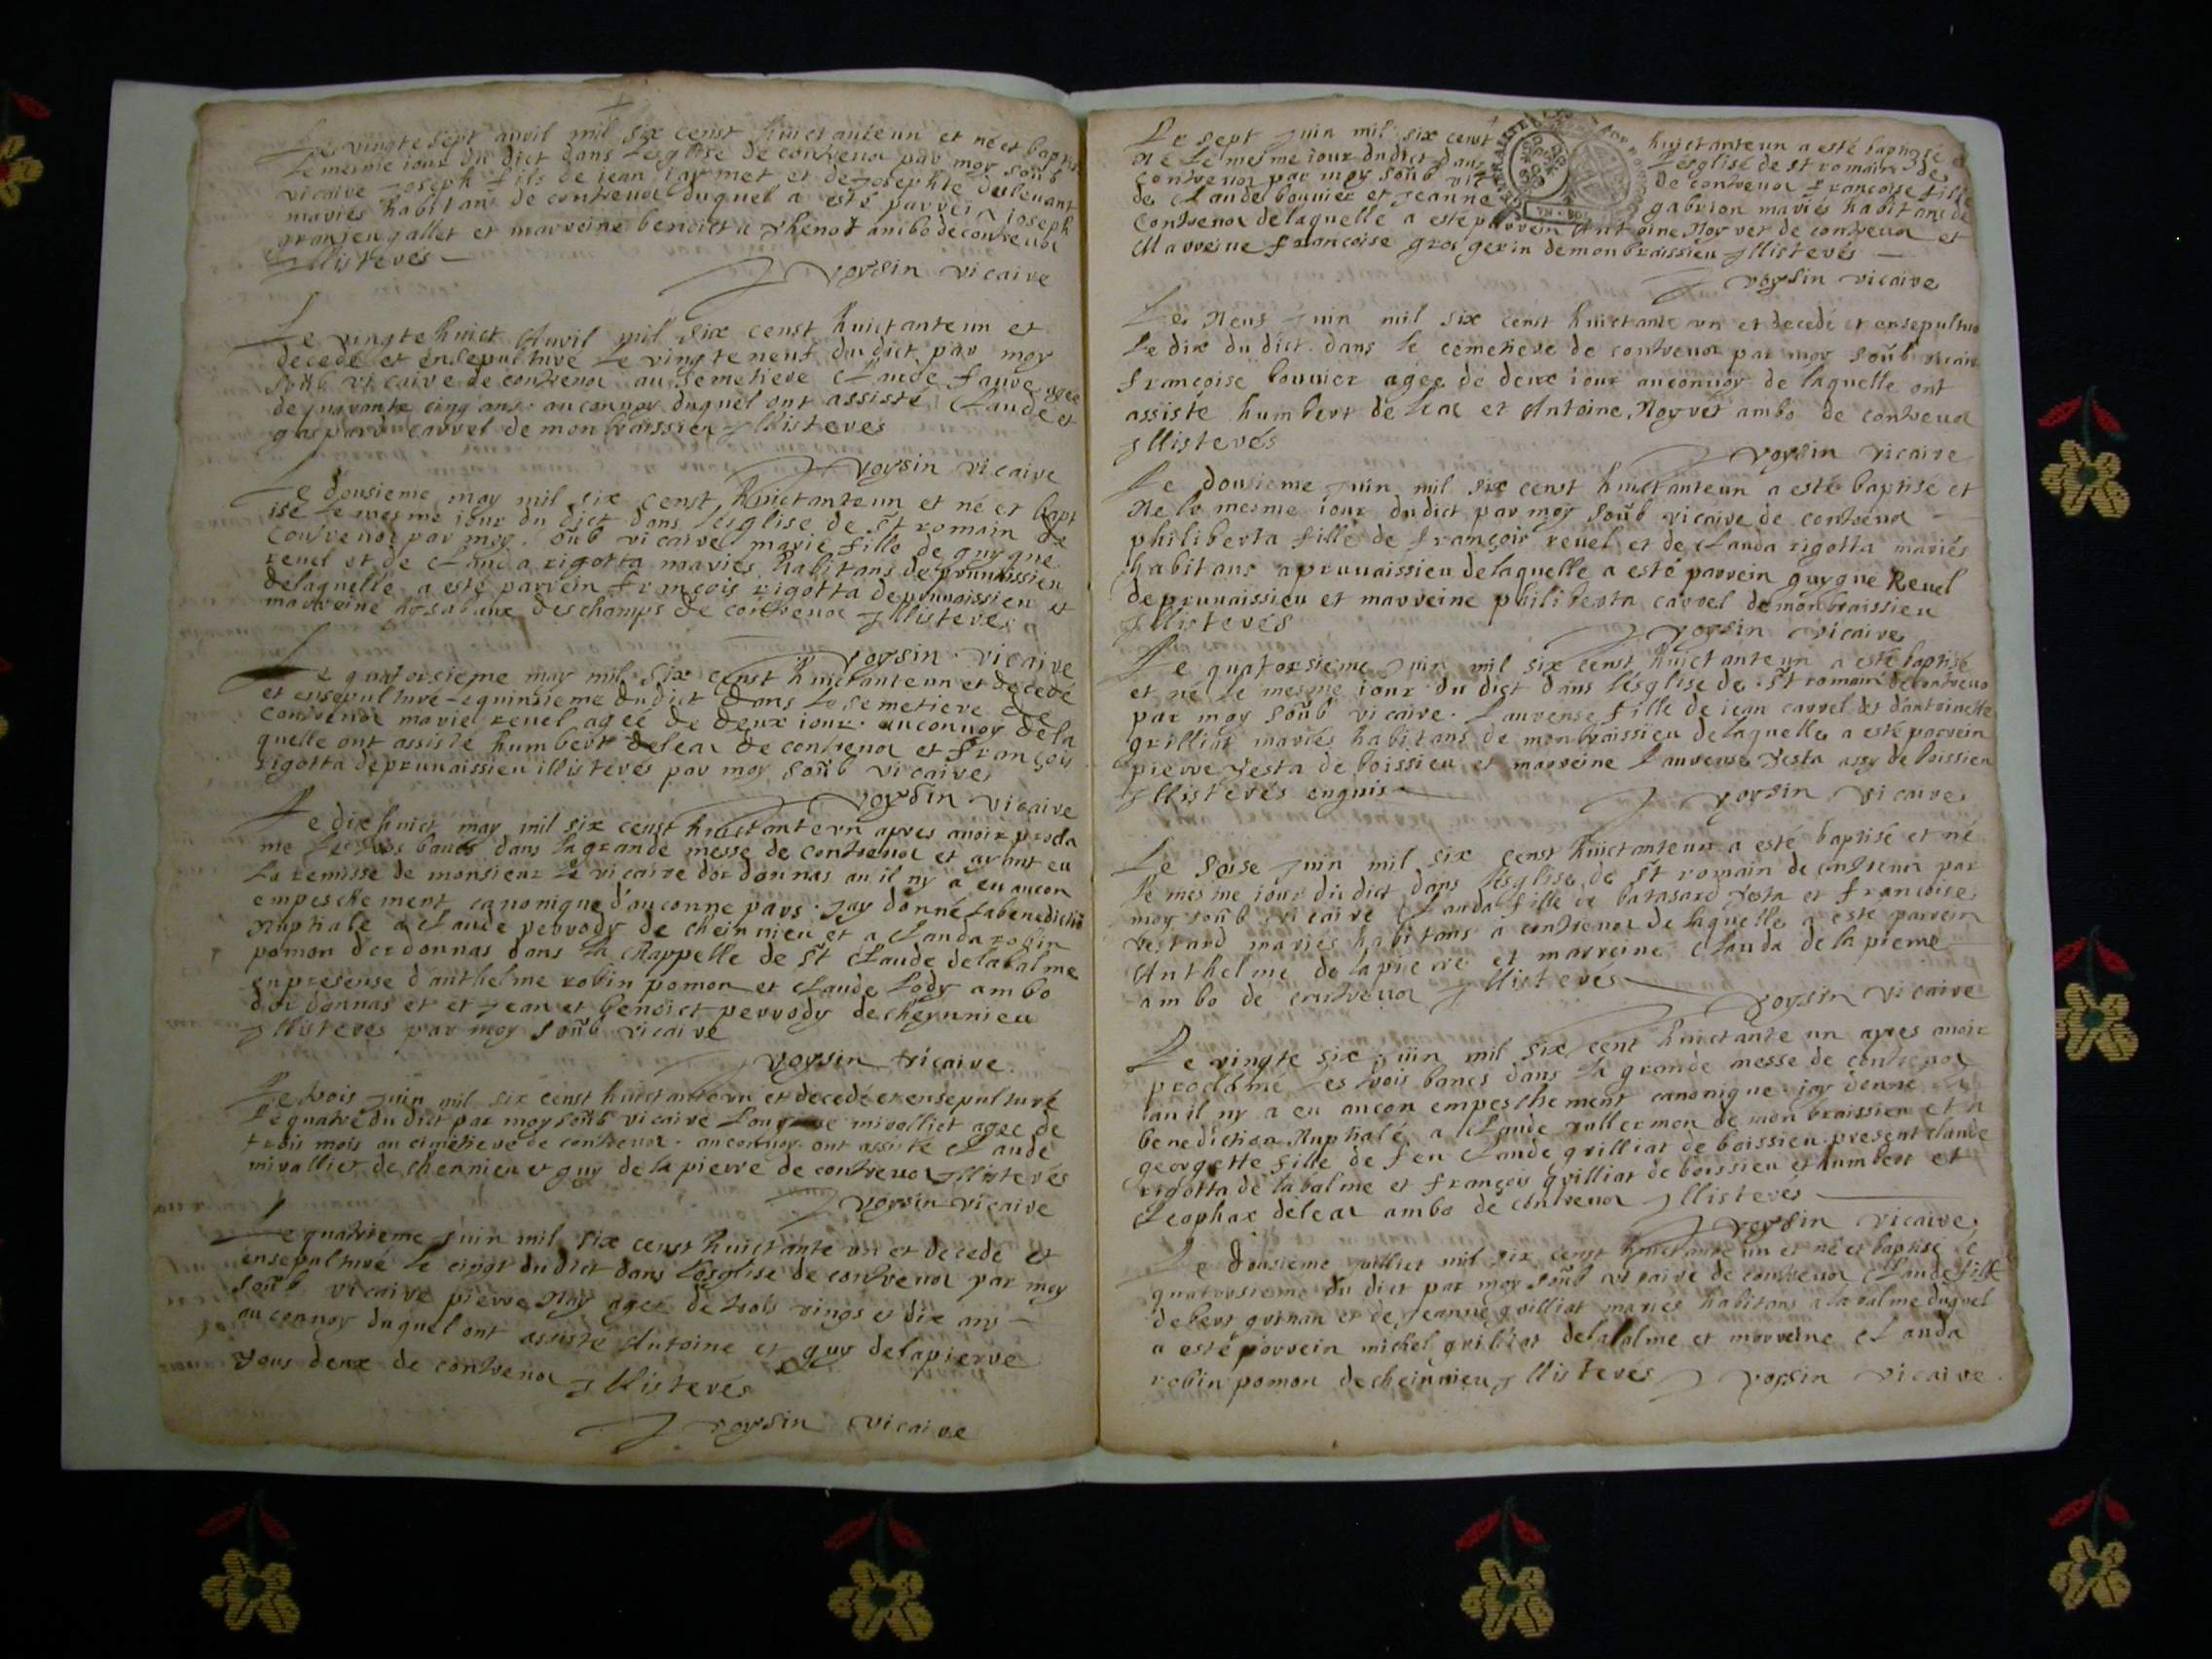 Le vingte sept avril mil six censt huictante un et né et baptis
le mesme iour du dict dans l'esglise de contrevoz par moy soub
vicaire Joseph fils de iean iaymet et de Josephte
mariés habitans de contrevoz duquel a esté parrein ioseph
gallet et marreine benoicte thenot ambo de contrevoz
Jllisterés
J voysin vicaire
Le vingte huict Auvil mil six censt huictante un et
decedé et ensepulturé le vingte neuf du dict par moy
soub vicaire de contrevoz au semetiere Claude faure agee
de quarante cinq ans auconvoy duquel ont assisté Claude et
gaspard carrel de montbraissieu Jllisterés
J voysin vicaire
Le dousieme may mil six censt huictante un et né et bapt
isé le mesme iour du dict dans l'esglise de st romain de
contrevoz par moy soub vicaire marie fille de guygne
revel et de Clauda rigotta mariés habitans de prunaissieu
delaquelle a esté parrein francois rigotta de prunaissieu et
marreine deschamps de contrevoz Jllisteres
J voysin vicaire
Le quatorsieme may mil six censt huictante un et decedé
et ensepulturé le quinsieme du dict dans le semetiere de
contrevoz marie revel agee de deux iour auconvoy dela
quelle ont assisté humbert delear de contrevoz et françois
rigotta de prunaissieu illisterés par moy soub vicaire
J voysin vicaire
Le dix huict may mil six censt huictante un apres avoir procla
me les trois bancs dans la grande messe de contrevoz et ayant eu
la remisse de monsieur le vicaire dordonnas au il ny a eu aucon
empeschement canonique d'auconne pars Jay donné la benedictio
Nuptiale a Claude perrody de cheinnieu et a Clauda robin
pomon d'ordonnas dans la chappelle de st Claude delabalme
enpresense d'anthelme robin pomon et Claude Lody ambo
dordonnas et et Jean et benoict perrody de cheynnieu
Jllisteres par moy soub vicaire
J voysin vicaire
Le trois juin mil six censt huictante un et decedé et ensepulturé
le quatre du dict par moy soub vicaire mivolliet agee de
trois mois au cimetiere de contrevoz auconvoy ont assisté Claude
mivolliet de cheinnieu et guy de la pierre de contrevoz Jllisterés
J voysin vicaire
Le quatrieme juin mil six censt huictante un et decedé et
ensepulturé le cinqt du dict dans l'esglise de contrevoz par moy
soub vicaire pierre Nay agee de trois vings et dix ans
auconvoy duquel ont assisté Antoine et guy delapierre
tous deux de contrevoz Jllisterés
J voysin vicaire
Le sept Juin mil six censt huictante un a esté baptisé et
Né le mesme iour du dict dans l'esglise de st romain de
contrevoz par moy soub vic de contrevoz francoise fille
de Claude bouvier et Jeanne gabrion mariés habitans de
contrevoz delaquelle a esté parrein Antoine Noyret de contrevoz et
Marreine françoise gros gerin de monbraissieu Jllisterés
J voysin vicaire
Le Neuf Juin mil six censt huictante un et decedé et ensepultur
le dix du dict dans le cemetiere de contrevoz par moy soub vicair
françoise bouvier agee de deux iour auconvoy de laquelle ont
assiste humbert de lear et Antoine Noyret ambo de contrevoz
Jllisterés
J voysin vicaire
Le dousieme Juin mil six censt huictante un a esté baptisé et
Né le mesme iour du dict par moy soub vicaire de contrevoz
philiberta fille de françois revel et de Clauda rigotta mariés
habitans aprunaissieu delaquelle a esté parrein guygne Revel
deprunaissieu et marreine philiberta carrel demonbraissieu
Jllisterés
J voysin vicaire
Le quatorsieme Juin mil six censt huictante un a esté baptisé
et né le mesme iour du dict dans l'esglise de st romain de contrevoz
par moy soub vicaire Laurense fille de iean carrel et d'antoinette
grilliat mariés habitans de monbraissieu delaquelle a esté parrein
pierre Jesta de boissieu et marreine Laurense Jesta assy de boissieu
Jllisterés enquis
J voysin vicaire
Le Saise Juin mil six censt huictante un a esté baptisé et né
le mesme iour du dict dans l'esglise de st romain de contrevoz par
moy soub vicaire Clauda fille de batasard Jesta et francoise
vestard mariés habitans a contrevoz de laquelle a esté parrein
Anthelme de lapierre et marreine Clauda de la pierre
ambo de contrevoz Jllisterés
J voysin vicaire
Le vingte six juin mil six cent huictante un apres avoir
proclamé les trois bancs dans la grande messe de contrevoz
au il ny a eu aucon empeschement canonique iay donné la
benediction Nuptialé a Claude vullermon de monbraissieu et a
georgette fille de feu Claude grilliat de boissieu present claude
rigotta de labalme et françois grilliat de boissieu et humbert et
Cleophax delear ambo de contrevoz Jllisterés
J voysin vicaire
Le dousieme Julliet mil six censt huictante un et né et baptisé le
quatorsieme du dict par moy soub vicaire de contrevoz Claude fille
de bert et de Jeanne grilliat mariés habitans a la balme duquel
a esté parrein michel grilliat delabalme et marreine Clauda
robin pomon de cheinnieu Jllisterés J voysin vicaire